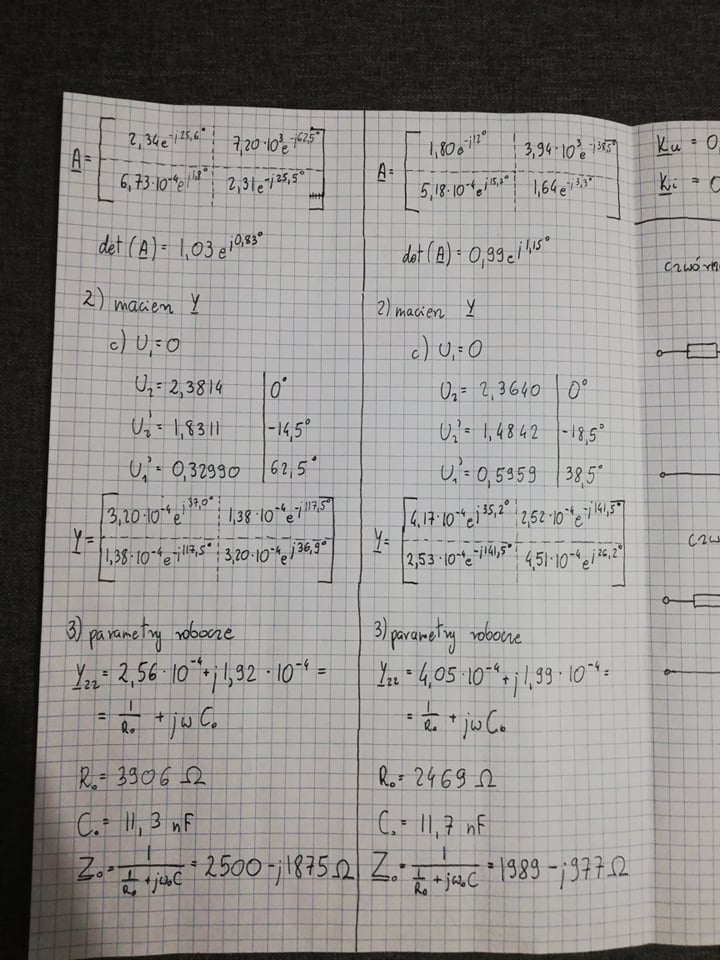 A = [ 2,34e^-j25,6° 7,20·10^3 e^-j62,5°
6,73·10^-4 e^j1,8° 2,31e^-j25,5° ]
det(A) = 1,03 e^j0,83°
2) macierz Y
c) U₁ = 0
U₂ = 2,3814 | 0°
U₂' = 1,8311 | -14,5°
U₁' = 0,32990 | 62,5°
Y = [ 3,20·10^-4 e^j37,0° 1,38·10^-4 e^-j117,5°
1,38·10^-4 e^-j117,5° 3,20·10^-4 e^j36,9° ]
3) parametry robocze
Y₂₂ = 2,56·10^-4 + j1,92·10^-4 =
= 1/R₀ + jωC₀
R₀ = 3906 Ω
C₀ = 11,3 nF
Z₀ = 1/(1/R₀ + jω₀C) = 2500 - j1875 Ω
A = [ 1,80e^-j12° 3,94·10^3 e^-j38,5°
5,18·10^-4 e^j15,3° 1,64e^-j3,3° ]
det(A) = 0,99e^j1,15°
2) macierz Y
c) U₁ = 0
U₂ = 2,3640 | 0°
U₂' = 1,4842 | -18,5°
U₁' = 0,5959 | 38,5°
Y = [ 4,17·10^-4 e^j35,2° 2,52·10^-4 e^-j141,5°
2,53·10^-4 e^-j141,5° 4,51·10^-4 e^j26,2° ]
3) parametry robocze
Y₂₂ = 4,05·10^-4 + j1,99·10^-4 =
= 1/R₀ + jωC₀
R₀ = 2469 Ω
C₀ = 11,7 nF
Z₀ = 1/(1/R₀ + jω₀C) = 1989 - j977 Ω
Ku = 0,
Ki = 0
czwórn
czw